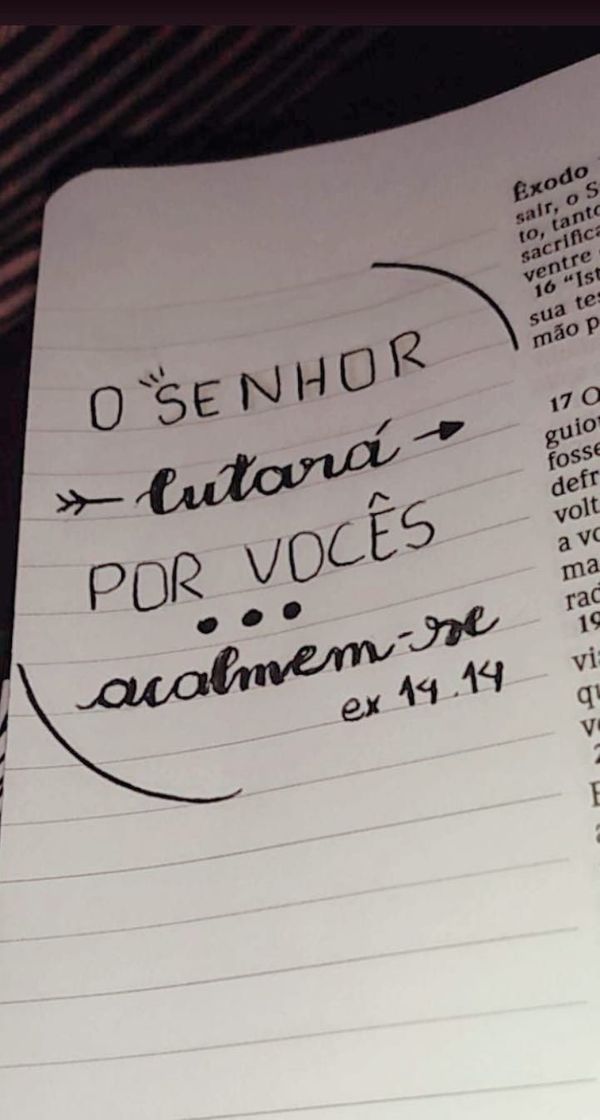 O SENHOR
lutará
POR VOCÊS
...
acalmem-se
ex 14.14
Êxodo
sair, o S
to, tant
sacrific
ventre
16 “Ist
sua te
mão p
17 O
guio
fosse
defr
volt
a vo
ma
rad
19
via
qu
v